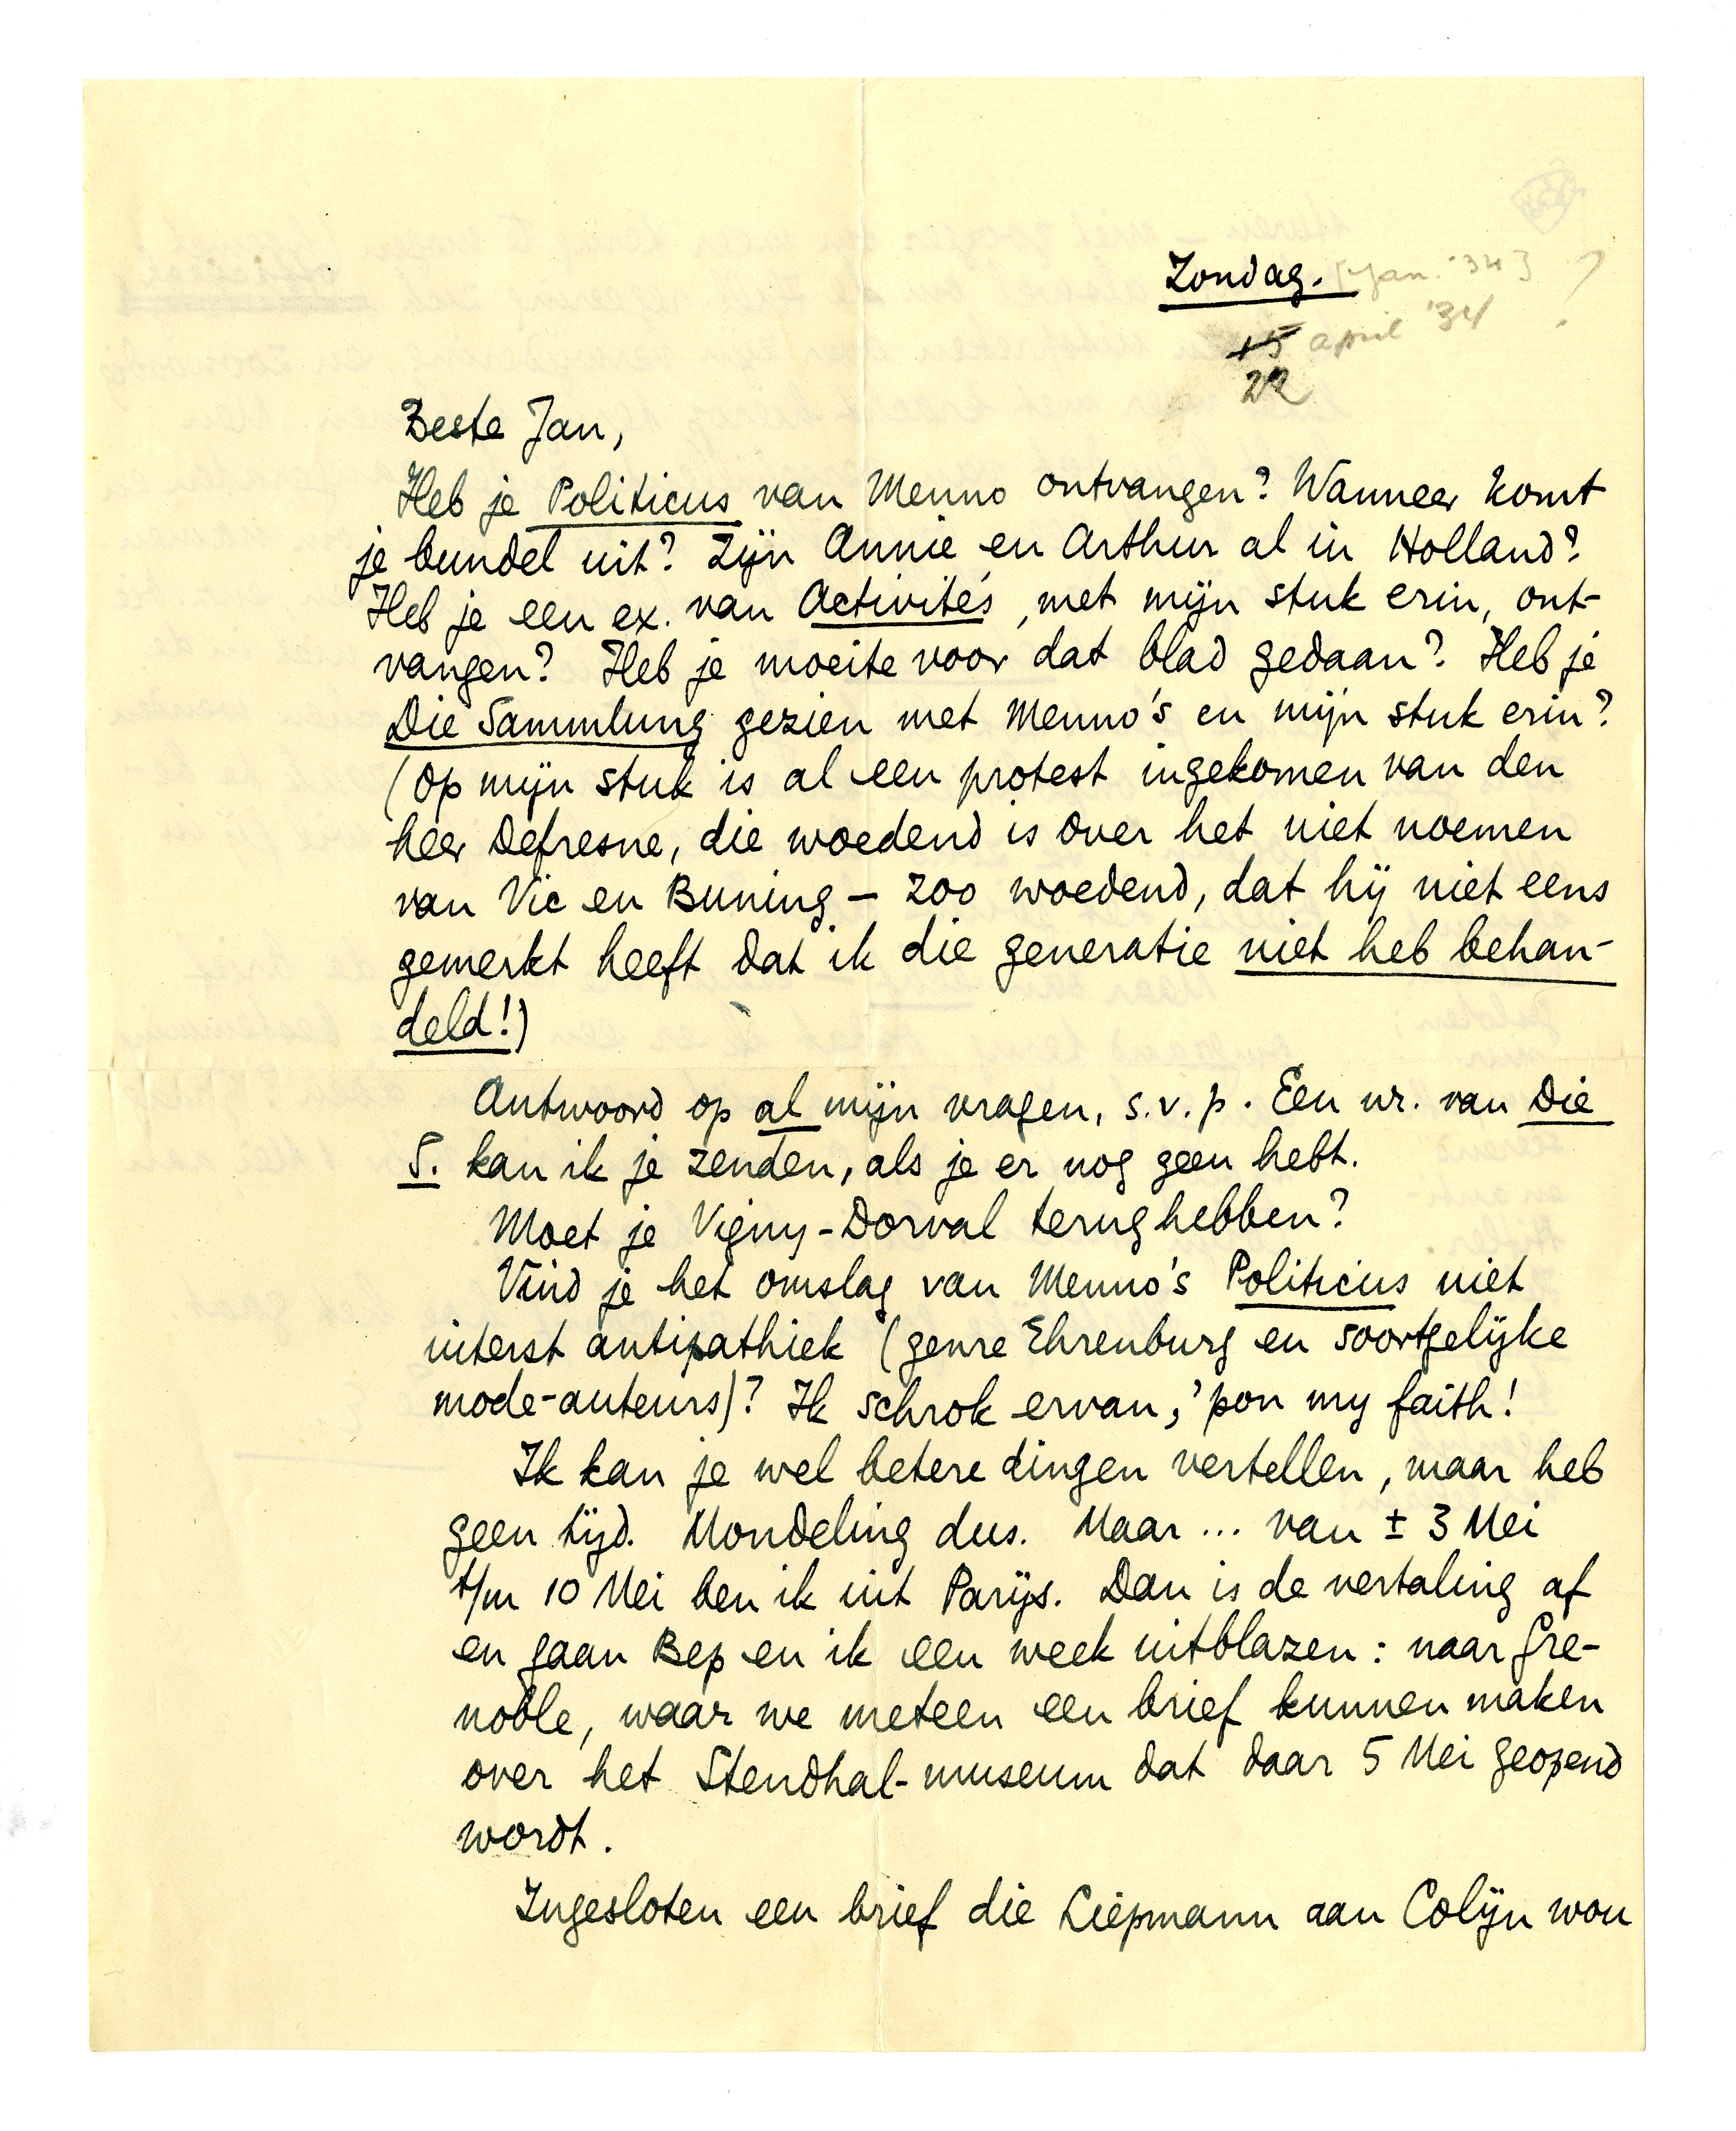 Zondag. [Jan. '34] ?
15 april '34
22
Beste Jan,
Heb je Politicus van Menno ontvangen? Wanneer komt
je bundel uit? Zijn Annie en Arthur al in Holland?
Heb je een ex. van Activités, met mijn stuk erin, ont-
vangen? Heb je moeite voor dat blad gedaan? Heb je
Die Sammlung gezien met Menno's en mijn stuk erin?
(Op mijn stuk is al een protest ingekomen van den
heer Defresne, die woedend is over het niet noemen
van Vic en Buning – zoo woedend, dat hij niet eens
gemerkt heeft dat ik die generatie niet heb behan-
deld!)
Antwoord op al mijn vragen, s.v.p. Een nr. van Die
S. kan ik je zenden, als je er nog geen hebt.
Moet je Vigny-Dorval terug hebben?
Vind je het omslag van Menno's Politicus niet
uiterst antipathiek (genre Ehrenburg en soortgelijke
mode-auteurs)? Ik schrok ervan, 'pon my faith!
Ik kan je wel betere dingen vertellen, maar heb
geen tijd. Mondeling dus. Maar ... van ± 3 Mei
t/m 10 Mei ben ik uit Parijs. Dan is de vertaling af
en gaan Bep en ik een week uitblazen: naar Gre-
noble, waar we meteen een brief kunnen maken
over het Stendhal-museum dat daar 5 Mei geopend
wordt.
Ingesloten een brief die Liepmann aan Colijn wou